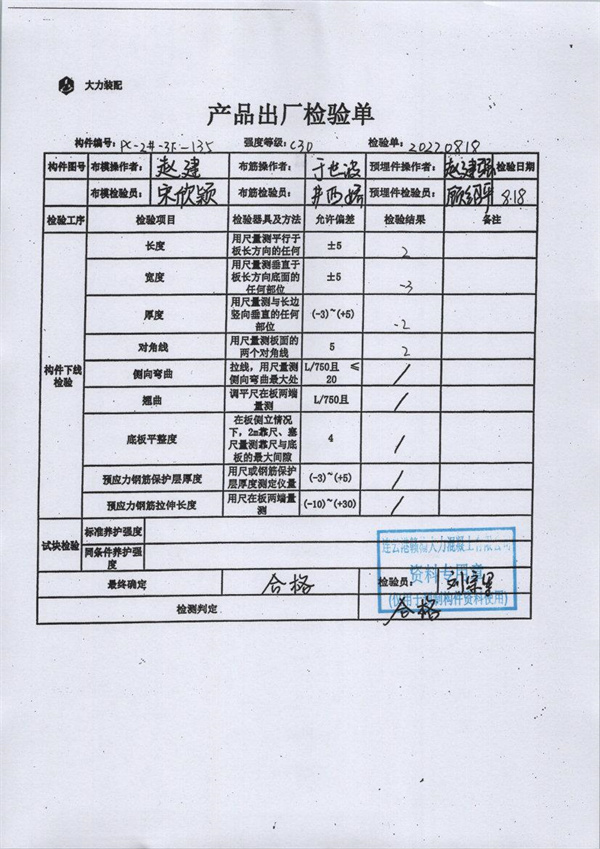 大力装配
产品出厂检验单
构件编号: PC-2#-3F-135 强度等级: C30 检验单: 20220818
构件图号 布模操作者: 赵建 布筋操作者: 于世波 预埋件操作者: 赵建 检验日期
布模检验员: 宋欣颖 布筋检验员: 预埋件检验员: 8.18
检验工序 检验项目 检验器具及方法 允许偏差 检验结果 备注
构件下线
检验
长度 用尺量测平行于
板长方向的任何 ±5 2
宽度 用尺量测垂直于
板长方向底面的
任何部位 ±5 -3
厚度 用尺量测与长边
竖向垂直的任何
部位 (-3)~(+5) -2
对角线 用尺量测板面的
两个对角线 5 2
侧向弯曲 拉线，用尺量测
侧向弯曲最大处 L/750且 ≤
20 /
翘曲 调平尺在板两端
量测 L/750且 /
底板平整度 在板侧立情况
下，2m靠尺、塞
尺量测靠尺与底
板的最大间隙 4 /
预应力钢筋保护层厚度 用尺或钢筋保护
层厚度测定仪量 (-3)~(+5) /
预应力钢筋拉伸长度 用尺在板两端量
测 (-10)~(+30) /
试块检验 标准养护强度
同条件养护强
度
连云港赣榆大力混凝土有限公司
资料专用章
(仅用于预制构件资料使用)
最终确定 合格 检验员:
检测判定 合格